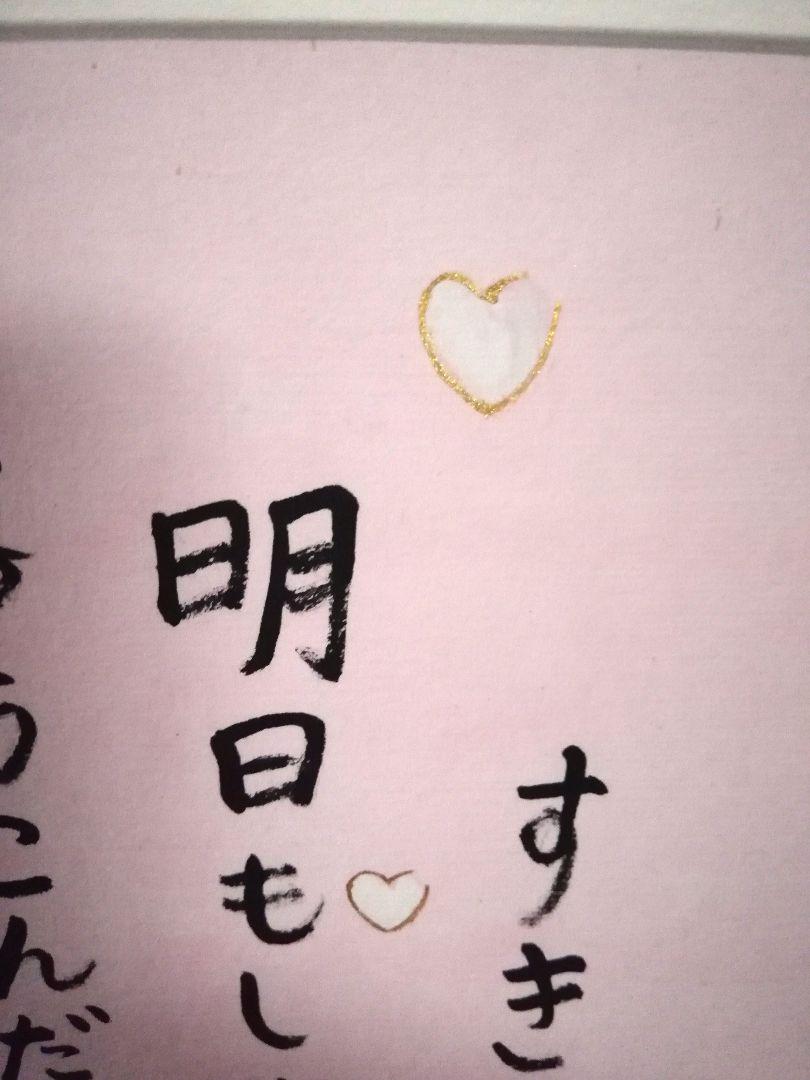 すき
明日もし
うこんだ